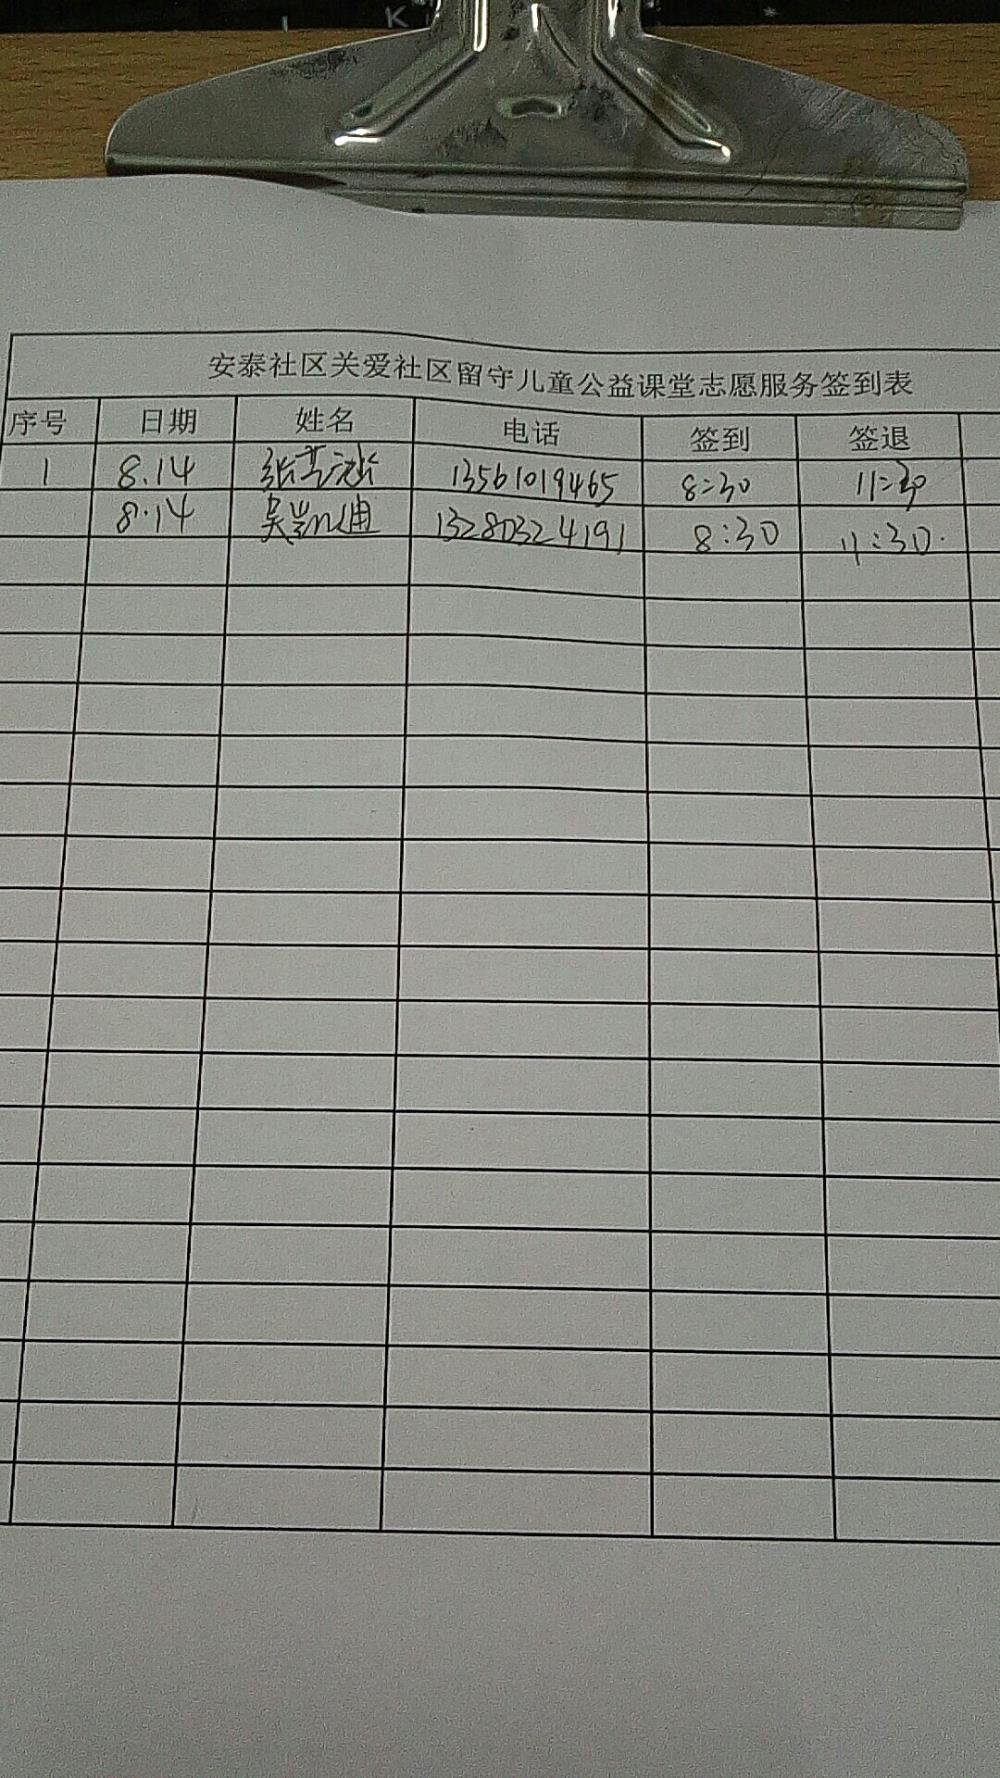 K
安泰社区关爱社区留守儿童公益课堂志愿服务签到表
序号 日期 姓名 电话 签到 签退
1 8.14 13561019465 8:30 11:30
8.14 吴凯迪 13280324191 8:30 11:30.